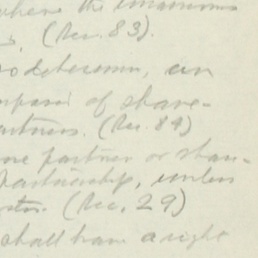 where the unanimous
(Sec. 83).
to determine, an
composed of share-
partners. (Sec. 84)
one partner or shar-
Partnership, unless
(Sec. 29)
shall have a right